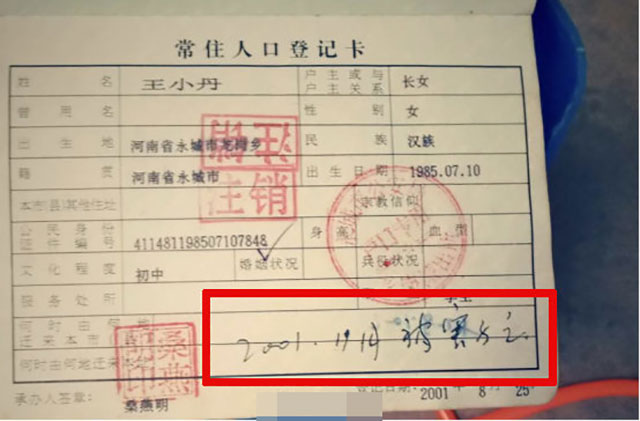 常住人口登记卡
姓 名 王小丹 户主或与户主关系 长女
曾用名 性 别 女
出生地 河南省永城市龙岗乡 民 族 汉族
籍 贯 河南省永城市 出生日期 1985.07.10
本市(县)其他住址 宗教信仰
公民身份证件编号 411481198507107848 身高 血型
文化程度 初中 婚姻状况 兵役状况
服务处所
何时由何地迁来本市
2001. 被害
何时由何地迁来
承办人签章: 桑燕明 登记日期: 2001 年 8 月 25
注销
桑燕明印